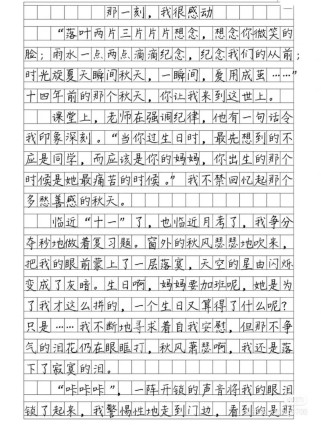 那一刻，我很感动
“落叶两片三片片片想念，想念你微笑的
脸；雨水一点两点滴滴纪念，纪念我们的从前；
时光旋夏天瞬间秋天，一瞬间，爱用成茧……”
十四年前的那个秋天，你让我来到这世上。
课堂上，老师在强调纪律，他有一句话令
我印象深刻。“当你过生日时，最先想到的不
应是同学，而应该是你的妈妈，你出生的那个
时候是她最痛苦的时候。”我不禁回忆起那个
多愁善感的秋天。
临近“十一”了，也临近月考了，我争分
夺秒地做着复习题。窗外的秋风瑟瑟地吹来，
把我的眼前蒙上了一层落寞，天空的星由闪烁
变成了灰暗。生日啊，妈妈要加班呢，她是为
了我才这么拼的，一个生日又算得了什么呢？
只是……我不断地寻求着自我安慰，但那不争
气的泪花仍在眼眶打，秋风萧瑟啊，我还是落
下了寂寞的泪。
“咔咔咔”，一阵开锁的声音将我的眼泪
锁了起来，我警惕性地走到门边，看到的是那